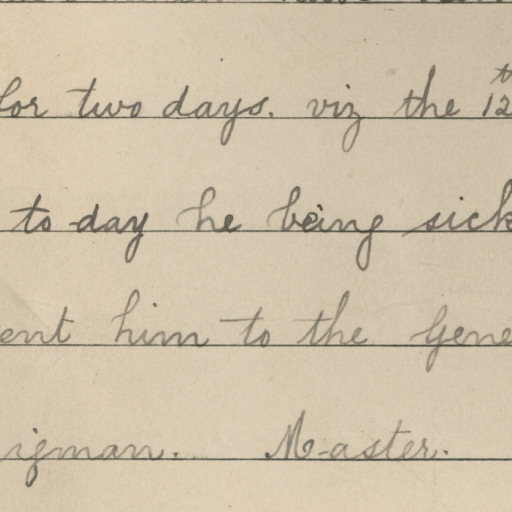 for two days. viz the 12th
to day he being sick
ent him to the Gene
igman. Master.